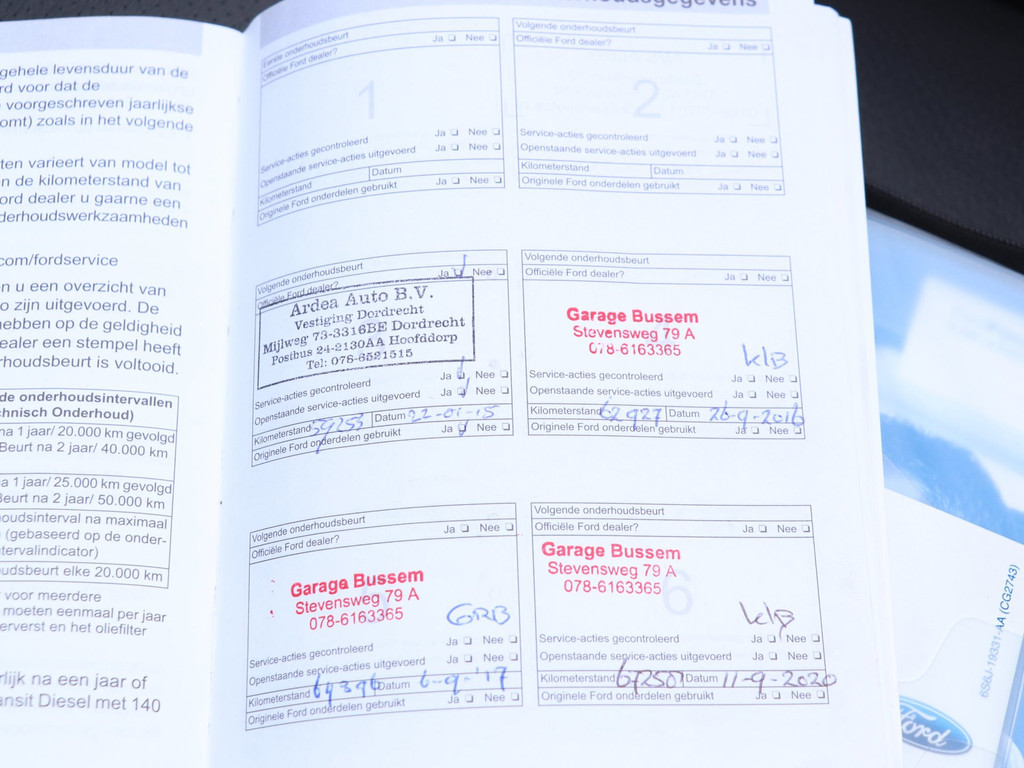 gehele levensduur van de
rd voor dat de
voorgeschreven jaarlijkse
omt) zoals in het volgende
ten varieert van model tot
en de kilometerstand van
ord dealer u gaarne een
derhoudswerkzaamheden
com/fordservice
en u een overzicht van
o zijn uitgevoerd. De
hebben op de geldigheid
ealer een stempel heeft
rhoudsbeurt is voltooid.
de onderhoudsintervallen
chnisch Onderhoud)
na 1 jaar/ 20.000 km gevolgd
Beurt na 2 jaar/ 40.000 km
a 1 jaar/ 25.000 km gevolgd
Beurt na 2 jaar/ 50.000 km
oudsinterval na maximaal
(gebaseerd op de onder-
tervalindicator)
udsbeurt elke 20.000 km
voor meerdere
moeten eenmaal per jaar
erverst en het oliefilter
rlijk na een jaar of
ansit Diesel met 140
houdsgegevens
Eerste onderhoudsbeurt
Officiële Ford dealer? Ja Nee
1
Service-acties gecontroleerd Ja Nee
Openstaande service-acties uitgevoerd Ja Nee
Kilometerstand Datum
Originele Ford onderdelen gebruikt Ja Nee
Volgende onderhoudsbeurt
Officiële Ford dealer? Ja Nee
2
Service-acties gecontroleerd Ja Nee
Openstaande service-acties uitgevoerd Ja Nee
Kilometerstand Datum
Originele Ford onderdelen gebruikt Ja Nee
Volgende onderhoudsbeurt
Officiële Ford dealer? Ja Nee
Ardea Auto B.V.
Vestiging Dordrecht
Mijlweg 73-3316BE Dordrecht
Postbus 24-2130AA Hoofddorp
Tel: 078-6521515
Service-acties gecontroleerd Ja Nee
Openstaande service-acties uitgevoerd Ja Nee
Kilometerstand 59255 Datum 22-01-15
Originele Ford onderdelen gebruikt Ja Nee
Volgende onderhoudsbeurt
Officiële Ford dealer? Ja Nee
Garage Bussem
Stevensweg 79 A
078-6163365
KLB
Service-acties gecontroleerd Ja Nee
Openstaande service-acties uitgevoerd Ja Nee
Kilometerstand 62927 Datum 26-9-2016
Originele Ford onderdelen gebruikt Ja Nee
Volgende onderhoudsbeurt
Officiële Ford dealer? Ja Nee
Garage Bussem
Stevensweg 79 A
078-6163365
GRB
Service-acties gecontroleerd Ja Nee
Openstaande service-acties uitgevoerd Ja Nee
Kilometerstand 64396 Datum 6-9-'17
Originele Ford onderdelen gebruikt Ja Nee
Volgende onderhoudsbeurt
Officiële Ford dealer? Ja Nee
Garage Bussem
Stevensweg 79 A
078-6163365
6
KLB
Service-acties gecontroleerd Ja Nee
Openstaande service-acties uitgevoerd Ja Nee
Kilometerstand 67250 Datum 11-9-2020
Originele Ford onderdelen gebruikt Ja Nee
6S6J-19331-AA (CG2743)
Ford